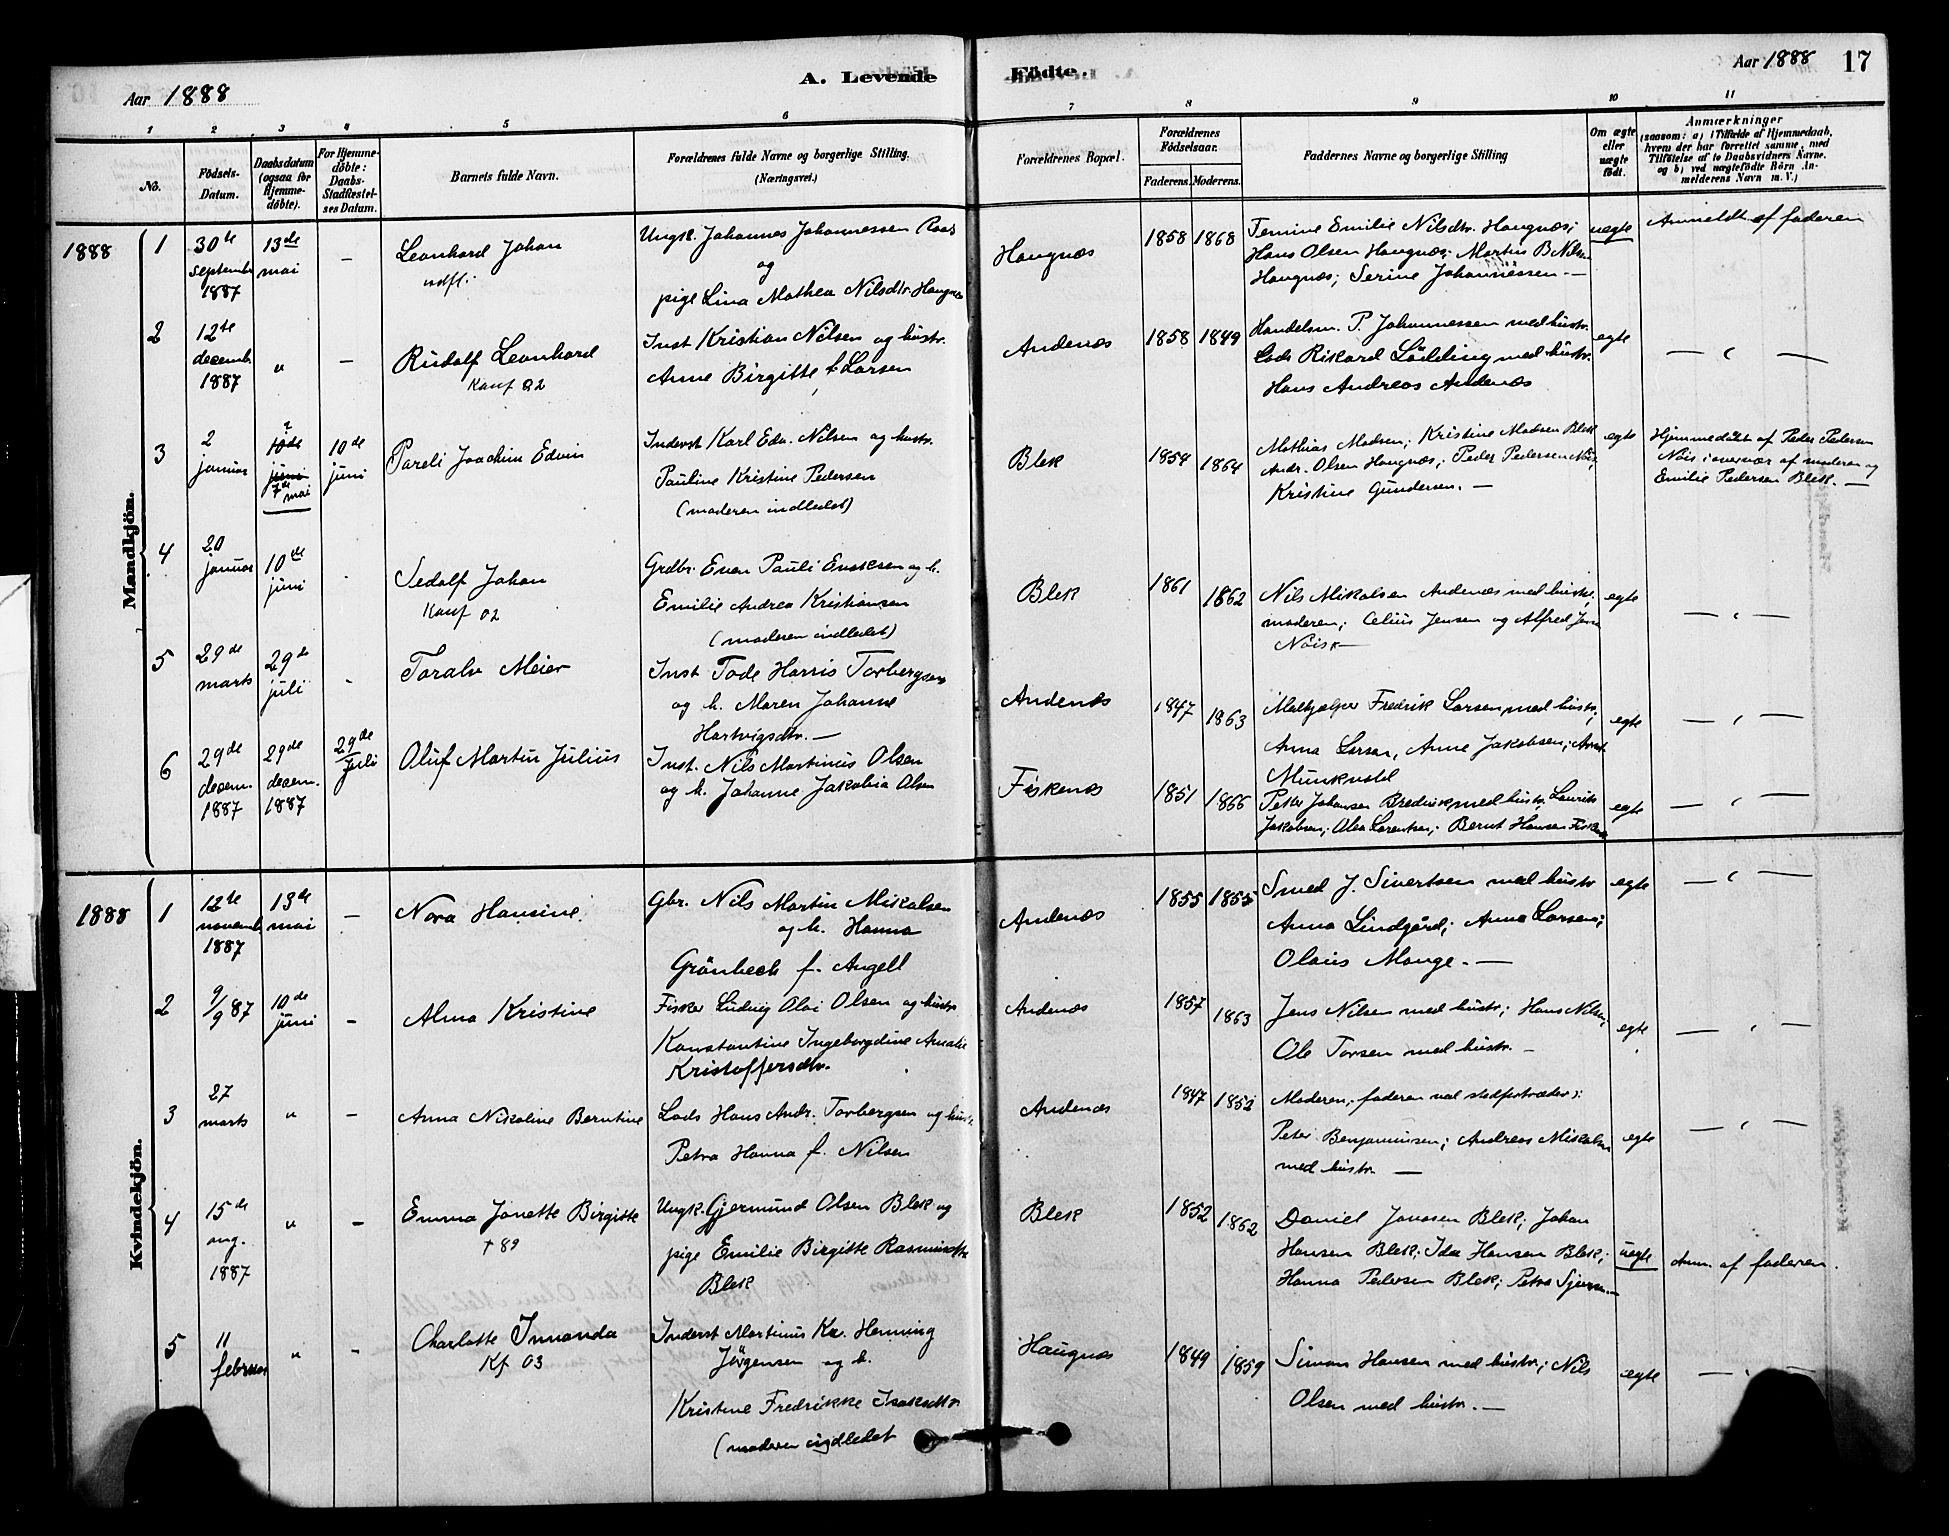 Aar 1888
A. Levende Födte.
Aar 1888 17
1 2 3 4 5 6 7 8 9 10 11
No.
Födsels-Datum.
Daabsdatum (ogsaa for Hjemme-döbte).
For Hjemme-döbte: Daabs-Stadfæstel-ses Datum.
Barnets fulde Navn.
Forældrenes fulde Navne og borgerlige Stilling.
(Næringsvei.)
Forældrenes Bopæl.
Forældrenes Födselsaar.
Faderens. Moderens.
Faddernes Navne og borgerlige Stilling
Om ægte eller uægte födt.
Anmærkninger
(saasom: a) i Tilfælde af Hjemmedaab,
hvem der har forrettet samme, med
Tilföielse af to Daabsvidners Navne.
og b) ved uægtefödte Börn An-
melderens Navn m. V.)
Mandkjön.
1888 1 30te septembr 1887 13de mai —
Leonhard Johan
Ungk. Johannes Johannessen
og
pige Lina Mathea Nilsdtr. Haugnæs
Haugnæs 1858 1868
Femine Emilie Nilsdtr. Haugnæs;
Hans Olsen Haugnæs; Martin B Nilsen
Haugnæs; Serine Johannessen —
uegte
Anmeldt af faderen
2 12te decembr 1887 " —
Rudolf Leonhard
Konf 02
Inst Kristian Nilsen og hustr.
Anne Birgitte f. Larsen
Andenæs 1858 1849
Handelsm. P. Johannessen med hustr.
Lods Rikard Lödding med hustr.
Hans Andreas Andenæs
egte — " —
3 2 januar 10de juni 7de mai 10de juni
Pareli Joachim Edvin
Inderst Karl Edv. Nilsen og hustr.
Pauline Kristine Pedersen
(moderen indledet)
Blek 1854 1864
Mathias Madsen; Kristine Madsen Blek
Andr. Olsen Haugnæs; Peder Pedersen Nöis;
Kristine Gundersen. —
egte
Hjemmedöbt af Peder Pedersen
Nöis i overvær af moderen og
Emilie Pedersen Blek. —
4 20 januar 10de juni
Sedolf Johan
Konf 02
Grdbr. Even Pauli Enoksen og h.
Emilie Andrea Kristiansen
(moderen indledet)
Blek 1861 1862
Nils Mikalsen Andenæs med hustr.
moderen; Celius Jensen og Alfred
Nöis —
egte — " —
5 29de marts 29de juli
Toralv Meier
Inst Tode Harris Torbergsen
og h. Maren Johanne
Hartvigsdtr. —
Andenæs 1847 1863
Fredrik Larsen med hustr.;
Anna Larsen, Anne Jakobsen;
egte — " —
6 29de decem. 1887 29de decem. 1887 29de juli
Oluf Martin Julius
Inst. Nils Martinus Olsen
og h. Johanne Jakobia Olsen
Fiskenæs 1851 1866
Peter Johansen med hustr. Laurits
Jakobsen; Olea Lorentsen; Bernt Hansen
egte — " —
Kvindekjön.
1888 1 12te novemb. 1887 13de mai —
Nora Hansine.
Gbr. Nils Martin Mikalsen
og h. Hanna
Grönbech f. Angell
Andenæs 1855 1855
Smed J. Sivertsen med hustr
Anna Lindgård; Anna Larsen;
Olaus Monge. —
egte — " —
2 9/9 87 10de juni —
Alma Kristine
Fisker Ludvig Olai Olsen og hustr.
Konstantine Ingeborgdine Amalie
Kristoffersdtr.
Andenæs 1857 1863
Jens Nilsen med hustr.; Hans Nilsen;
Ole Torsen med hustr. —
egte — " —
3 27 marts " —
Anna Nikoline Berntine
Lods Hans Andr. Torbergsen og hustr.
Petra Hanna f. Nilsen
Andenæs 1847 1852
Moderen; faderen ved stedfortræder;
Peter Benjaminsen; Andreas Mikalsen
med hustr. —
egte — " —
4 15de aug. 1887 " —
Emma Janette Birgitte
† 89
Ungk. Gjermund Olsen Blek og
pige Emilie Birgitte Rasmusdtr
Blek
Blek 1852 1862
Daniel Jonasen Blek; Johan
Hansen Blek; Ida Hansen Blek;
Hanna Pedersen Blek; Petra
uegte Anm. af faderen.
5 11 februar " —
Charlotte Imanda
Kf 03
Inderst Martinus Kr. Henning
Jörgensen og h.
Kristine Fredrikke Isaksdtr.
(moderen indledet
Haugnæs 1849 1859
Simon Hansen med hustr.; Nils
Olsen med hustr. —
egte — " —